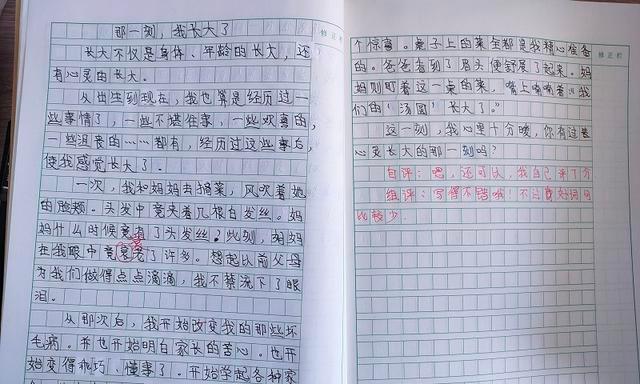 那一刻，我长大了
长大不仅是身体、年龄的长大，还
有心灵的长大。
从出生到现在，我也算是经历过一
些事情了，一些不堪往事，一些欢喜的，
一些沮丧的……都有，经历过这些事后，
使我感觉长大了。
一次，我和妈妈去摘菜，风吹着她
的脸颊。头发中竟夹着几根白发丝。妈
妈什么时候竟有了头发丝？此刻，妈妈
在我眼中竟老了许多。想起以前父母
为我们做得点点滴滴，我不禁流下了眼
泪。
从那次后，我开始改变我的那些坏
毛病。并也开始明白家长的苦心。也开
始变得乖巧、懂事了。开始学起各种家
修正栏
个惊喜。桌子上的菜全都是我精心准备
的。爸爸看到了眉头便舒展了起来。妈
妈则盯着这一桌的菜，嘴上喃喃着"我
们的'汤圆'长大了。"
这一刻，我心里十分暖，你有过甚
心灵长大的那一刻吗？
自评：嗯，还可以，我自己来了个
组评：写得不错哦！不过好词句
比较少．
修正栏